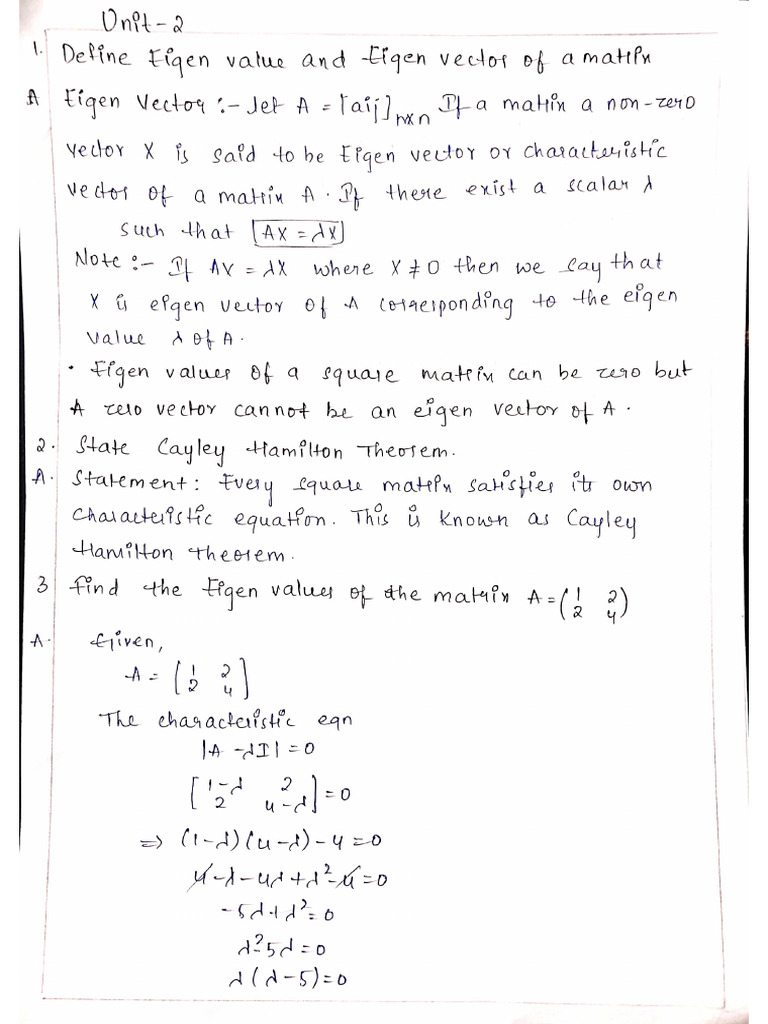 Unit-2
1. Define Eigen value and Eigen vector of a matrix
A Eigen Vector :- Let A = [aij]nxn If a matrix a non-zero
vector X is said to be Eigen vector or characteristic
vector of a matrix A. If there exist a scalar λ
such that AX = λX
Note :- If AX = λX where X ≠ 0 then we say that
X is eigen vector of A corresponding to the eigen
value λ of A.
• Eigen values of a square matrix can be zero but
A zero vector cannot be an eigen vector of A.
2. State Cayley Hamilton Theorem.
A. Statement: Every square matrix satisfies its own
characteristic equation. This is known as Cayley
Hamilton theorem.
3 find the Eigen values of the matrix A = (1 2
2 4)
A. Given,
A = [1 2
2 4]
The characteristic eqn
|A - λI| = 0
[1-λ 2
2 4-λ] = 0
⇒ (1-λ)(4-λ) - 4 = 0
4 - λ - 4λ + λ² - 4 = 0
-5λ + λ² = 0
λ² 5λ = 0
λ(λ-5) = 0